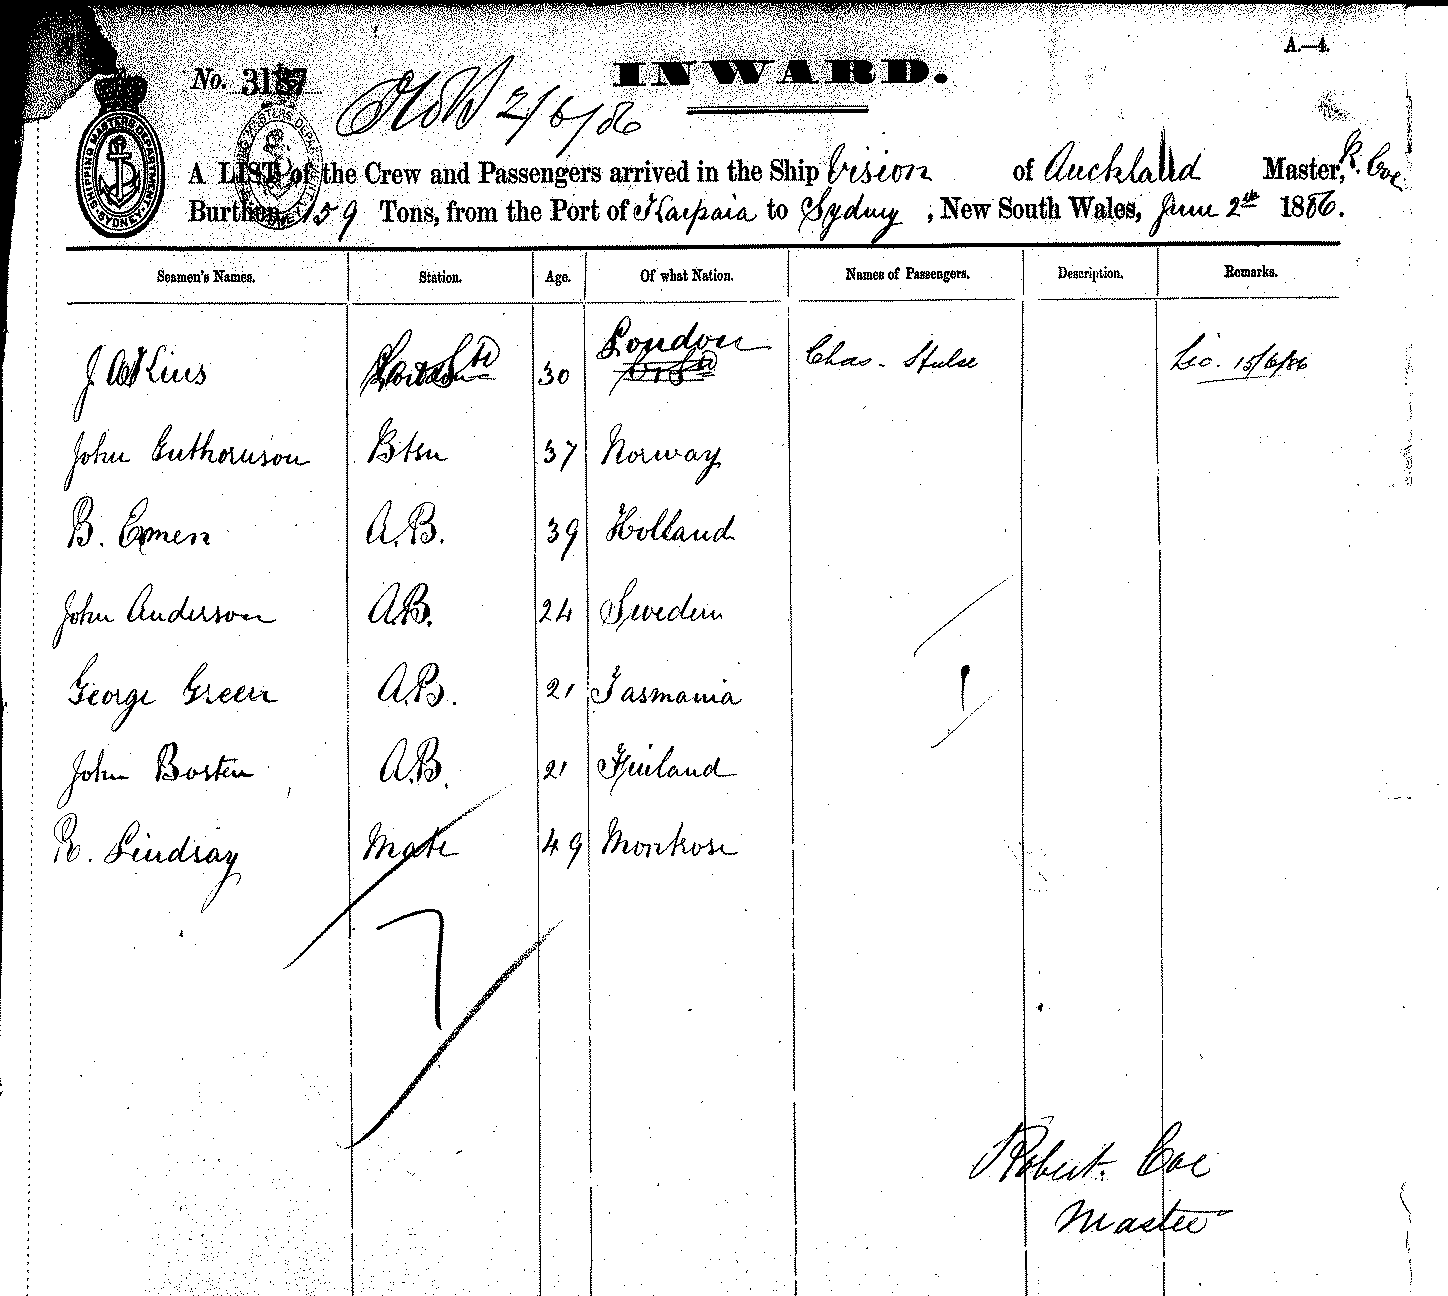 A.—4.
No. 3187
INWARD.
2/6/86
SHIPPING MASTERS DEPARTMENT SYDNEY
A LIST of the Crew and Passengers arrived in the Ship Vision of Auckland Master, R. Coe
Burthen, 159 Tons, from the Port of Kaipaia to Sydney, New South Wales, June 2th 1886.
Seamen's Names. Station. Age. Of what Nation. Names of Passengers. Description. Remarks.
J. Atkins 30 London Chas. Hulse Lic. 15/6/86
John Guthornson Btsn 37 Norway
B. Emen A.B. 39 Holland
John Anderson A.B. 24 Sweden
George Green A.B. 21 Tasmania
John Bosten A.B. 21 Finland
R. Lindsay Mate 49 Montrose
7
1
Robert Coe
Master